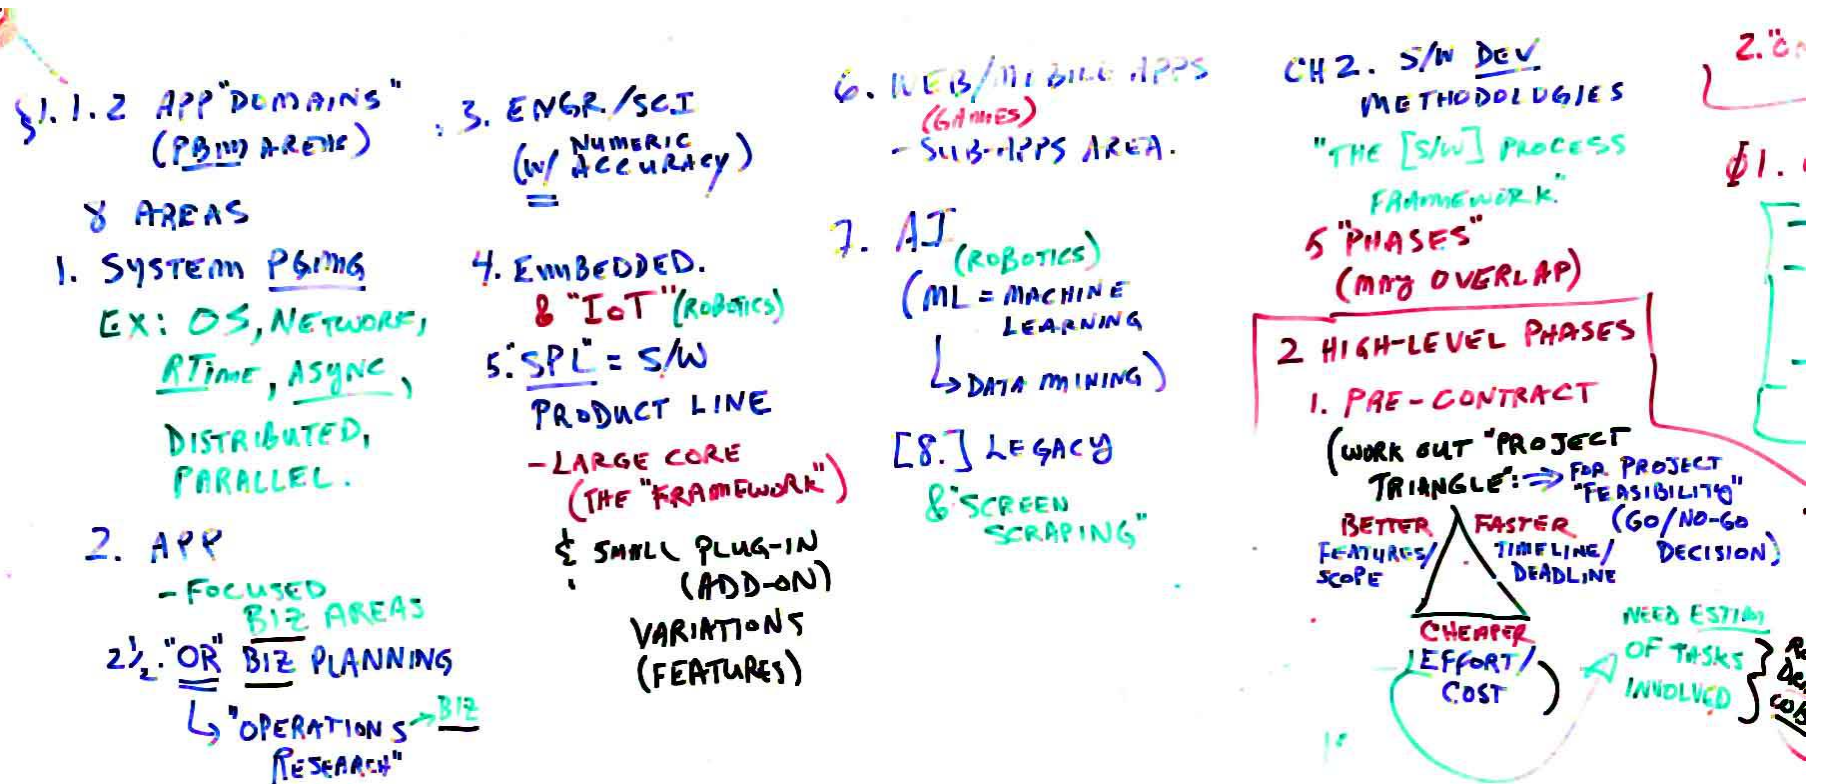 §1.1.2 APP "DOMAINS"
(PBM AREAS)
8 AREAS
1. SYSTEM PGMG
EX: OS, NETWORK,
RTIME, ASYNC,
DISTRIBUTED,
PARALLEL.
2. APP
- FOCUSED
BIZ AREAS
2½. "OR" BIZ PLANNING
↳ "OPERATIONS → BIZ
RESEARCH"
3. ENGR./SCI
NUMERIC
(W/ ACCURACY)
4. EMBEDDED.
& "IoT" (ROBOTICS)
5. "SPL" = S/W
PRODUCT LINE
- LARGE CORE
(THE "FRAMEWORK")
& SMALL PLUG-IN
(ADD-ON)
VARIATIONS
(FEATURES)
6. WEB/MOBILE APPS
(GAMES)
- SUB-APPS AREA.
7. AI
(ROBOTICS)
(ML = MACHINE
LEARNING
↳ DATA MINING)
[8.] LEGACY
& "SCREEN
SCRAPING"
CH 2. S/W DEV
METHODOLOGIES
"THE [S/W] PROCESS
FRAMEWORK."
5 "PHASES"
(MAY OVERLAP)
2 HIGH-LEVEL PHASES
1. PRE-CONTRACT
(WORK OUT "PROJECT
TRIANGLE": ⇒ FOR PROJECT
"FEASIBILITY"
(GO/NO-GO
DECISION)
BETTER FASTER
FEATURES/ TIMELINE/
SCOPE DEADLINE
CHEAPER
EFFORT/
COST)
NEED ESTIM
OF TASKS
INVOLVED
2.
1.